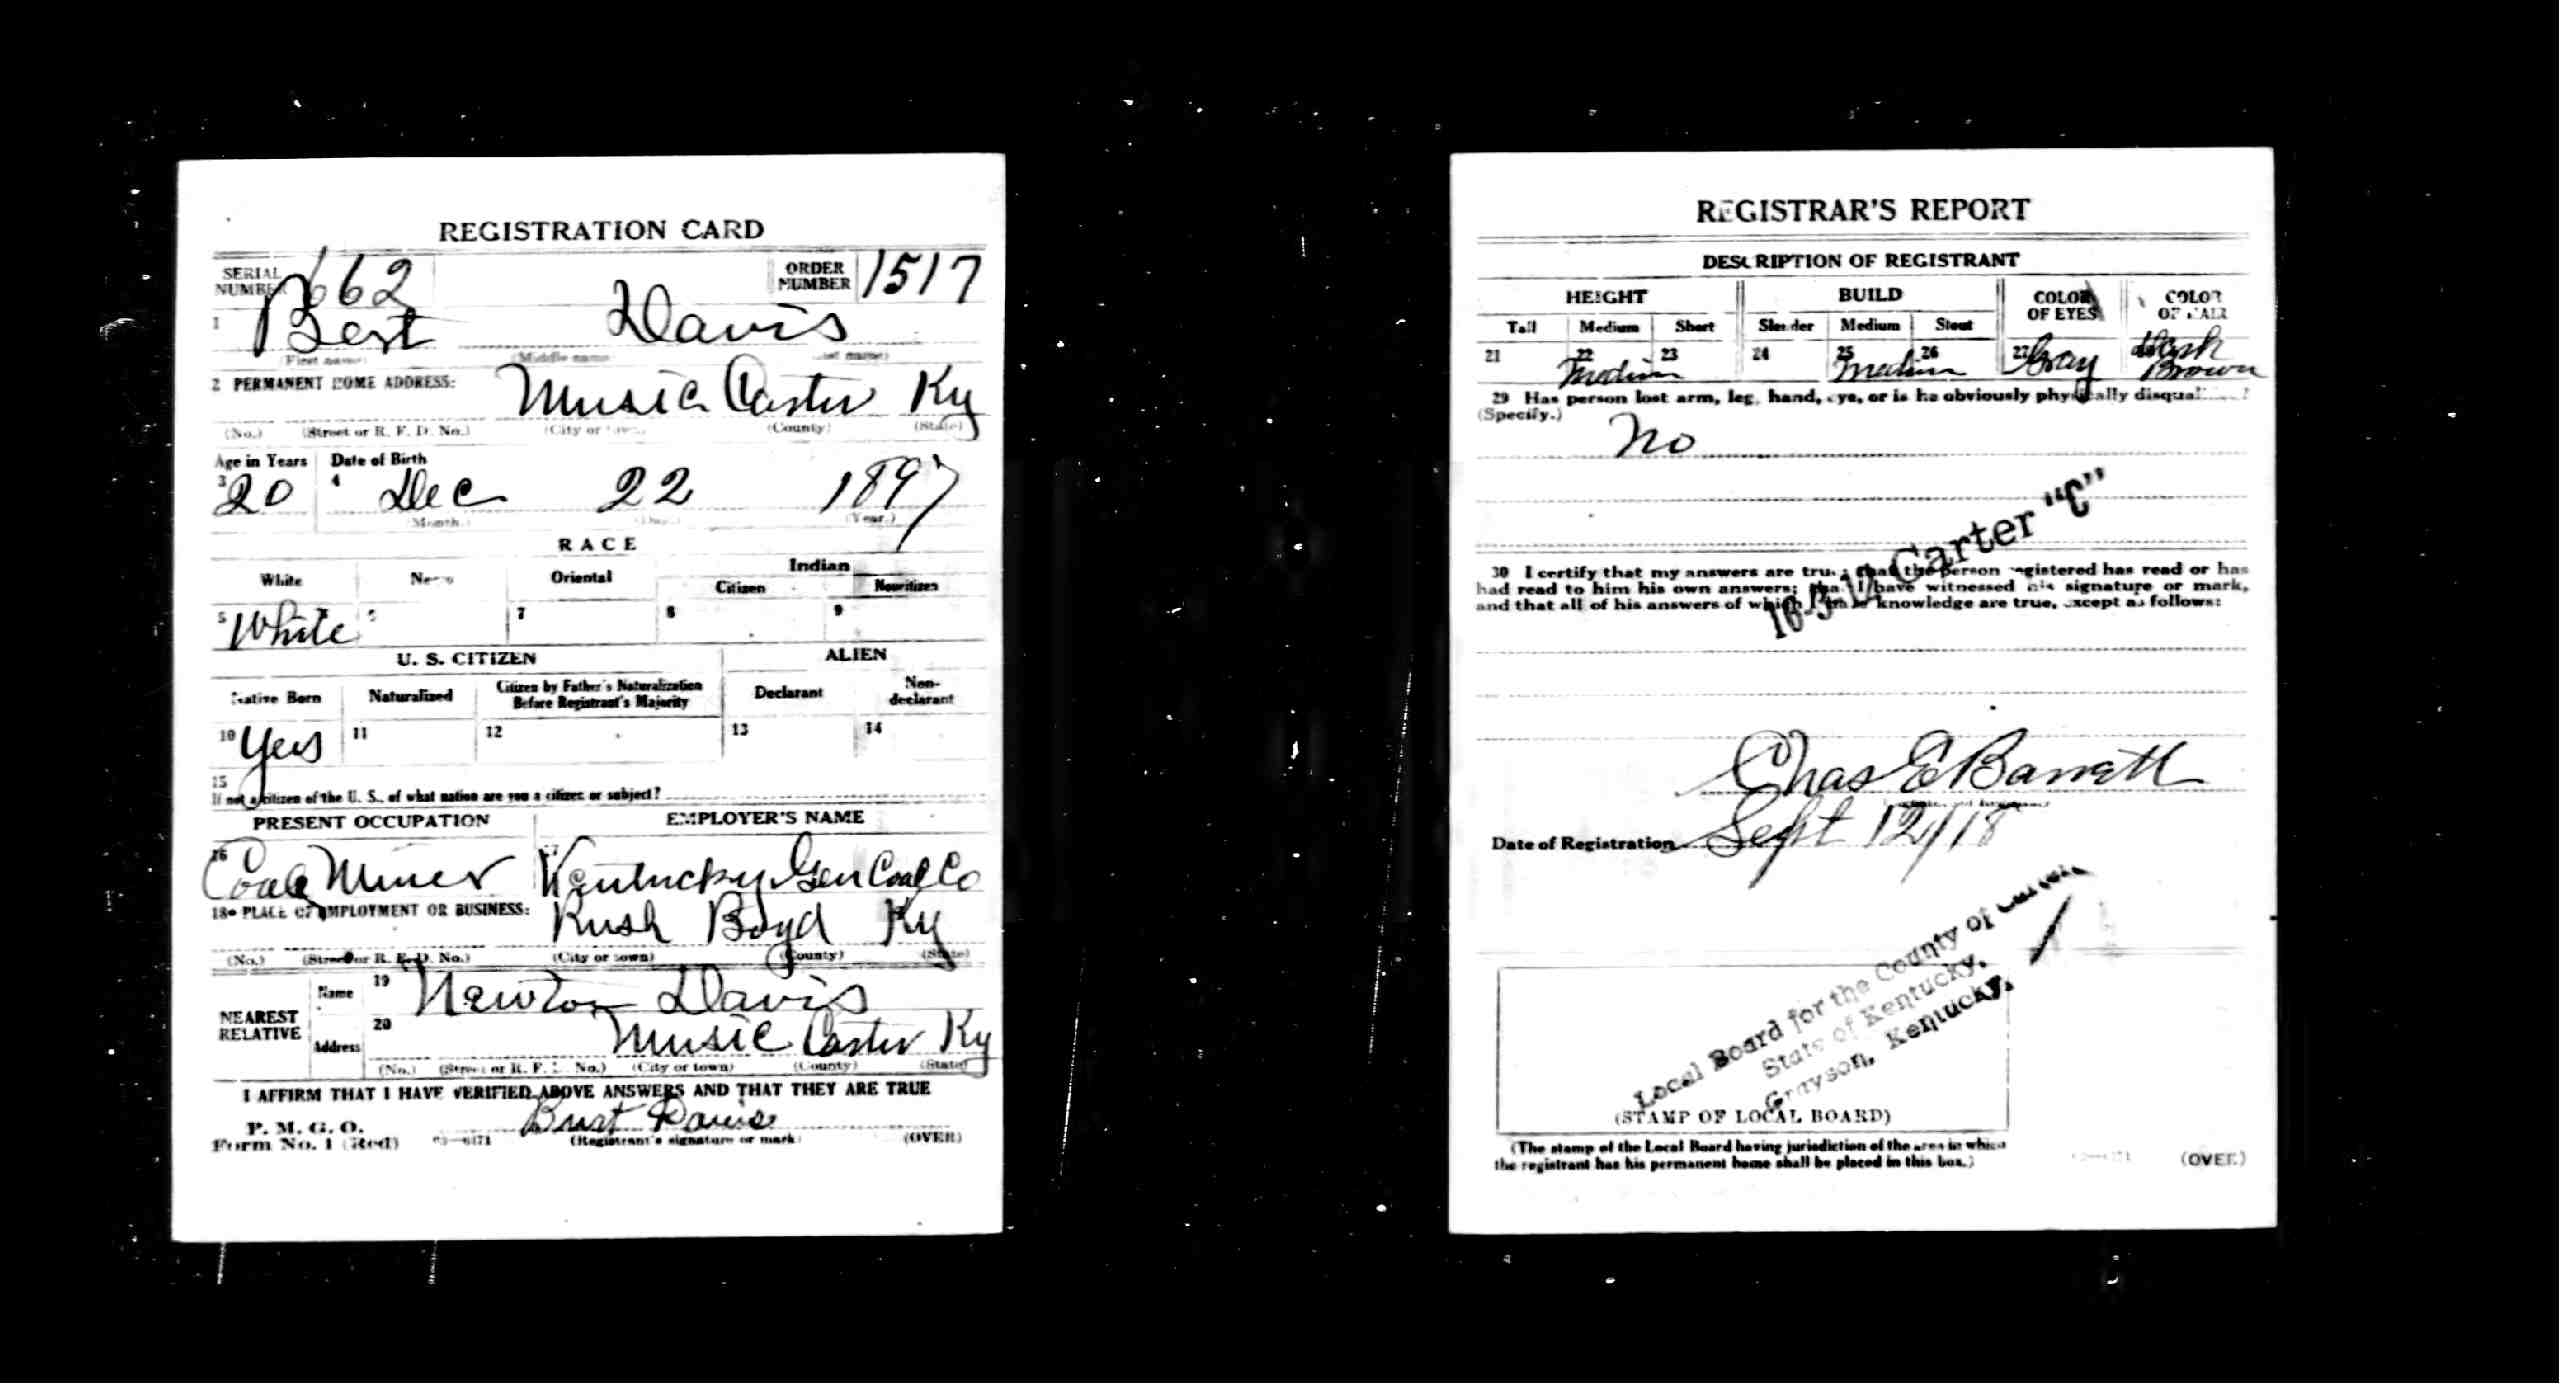 REGISTRATION CARD
SERIAL NUMBER 662 ORDER NUMBER 1517
1 Bert Davis
(First name) (Middle name) (Last name)
2 PERMANENT HOME ADDRESS: Music Carter Ky
(No.) (Street or R. F. D. No.) (City or town) (County) (State)
Age in Years Date of Birth
3 20 4 Dec 22 1897
(Month.) (Day.) (Year.)
RACE
White Negro Oriental Indian
Citizen Noncitizen
5 White 6 7 8 9
U. S. CITIZEN ALIEN
Native Born Naturalized Citizen by Father's Naturalization Before Registrant's Majority Declarant Non-declarant
10 Yes 11 12 13 14
15
If not a citizen of the U. S., of what nation are you a citizen or subject?
PRESENT OCCUPATION EMPLOYER'S NAME
16 Coal Miner Kentucky Gen Coal Co
18 PLACE OF EMPLOYMENT OR BUSINESS: Rush Boyd Ky
(No.) (Street or R. F. D. No.) (City or town) (County) (State)
NEAREST RELATIVE
Name 19 Newton Davis
Address 20 Music Carter Ky
(No.) (Street or R. F. D. No.) (City or town) (County) (State)
I AFFIRM THAT I HAVE VERIFIED ABOVE ANSWERS AND THAT THEY ARE TRUE
P. M. G. O.
Form No. 1 (Red) Burt Davis
(Registrant's signature or mark) (OVER)
REGISTRAR'S REPORT
DESCRIPTION OF REGISTRANT
HEIGHT BUILD COLOR OF EYES COLOR OF HAIR
Tall Medium Short Slender Medium Stout
21 22 Medium 23 24 25 Medium 26 27 Gray Dark Brown
29 Has person lost arm, leg, hand, eye, or is he obviously physically disqualified?
(Specify.) No
16-3-12 Carter "C"
30 I certify that my answers are true; that the person registered has read or has
had read to him his own answers; that I have witnessed his signature or mark,
and that all of his answers of which I have knowledge are true, except as follows:
Chas E Barrett
Date of Registration Sept 12/18
Local Board for the County of Carter
State of Kentucky,
Grayson, Kentucky.
(STAMP OF LOCAL BOARD)
(The stamp of the Local Board having jurisdiction of the area in which
the registrant has his permanent home shall be placed in this box.)
(OVER)